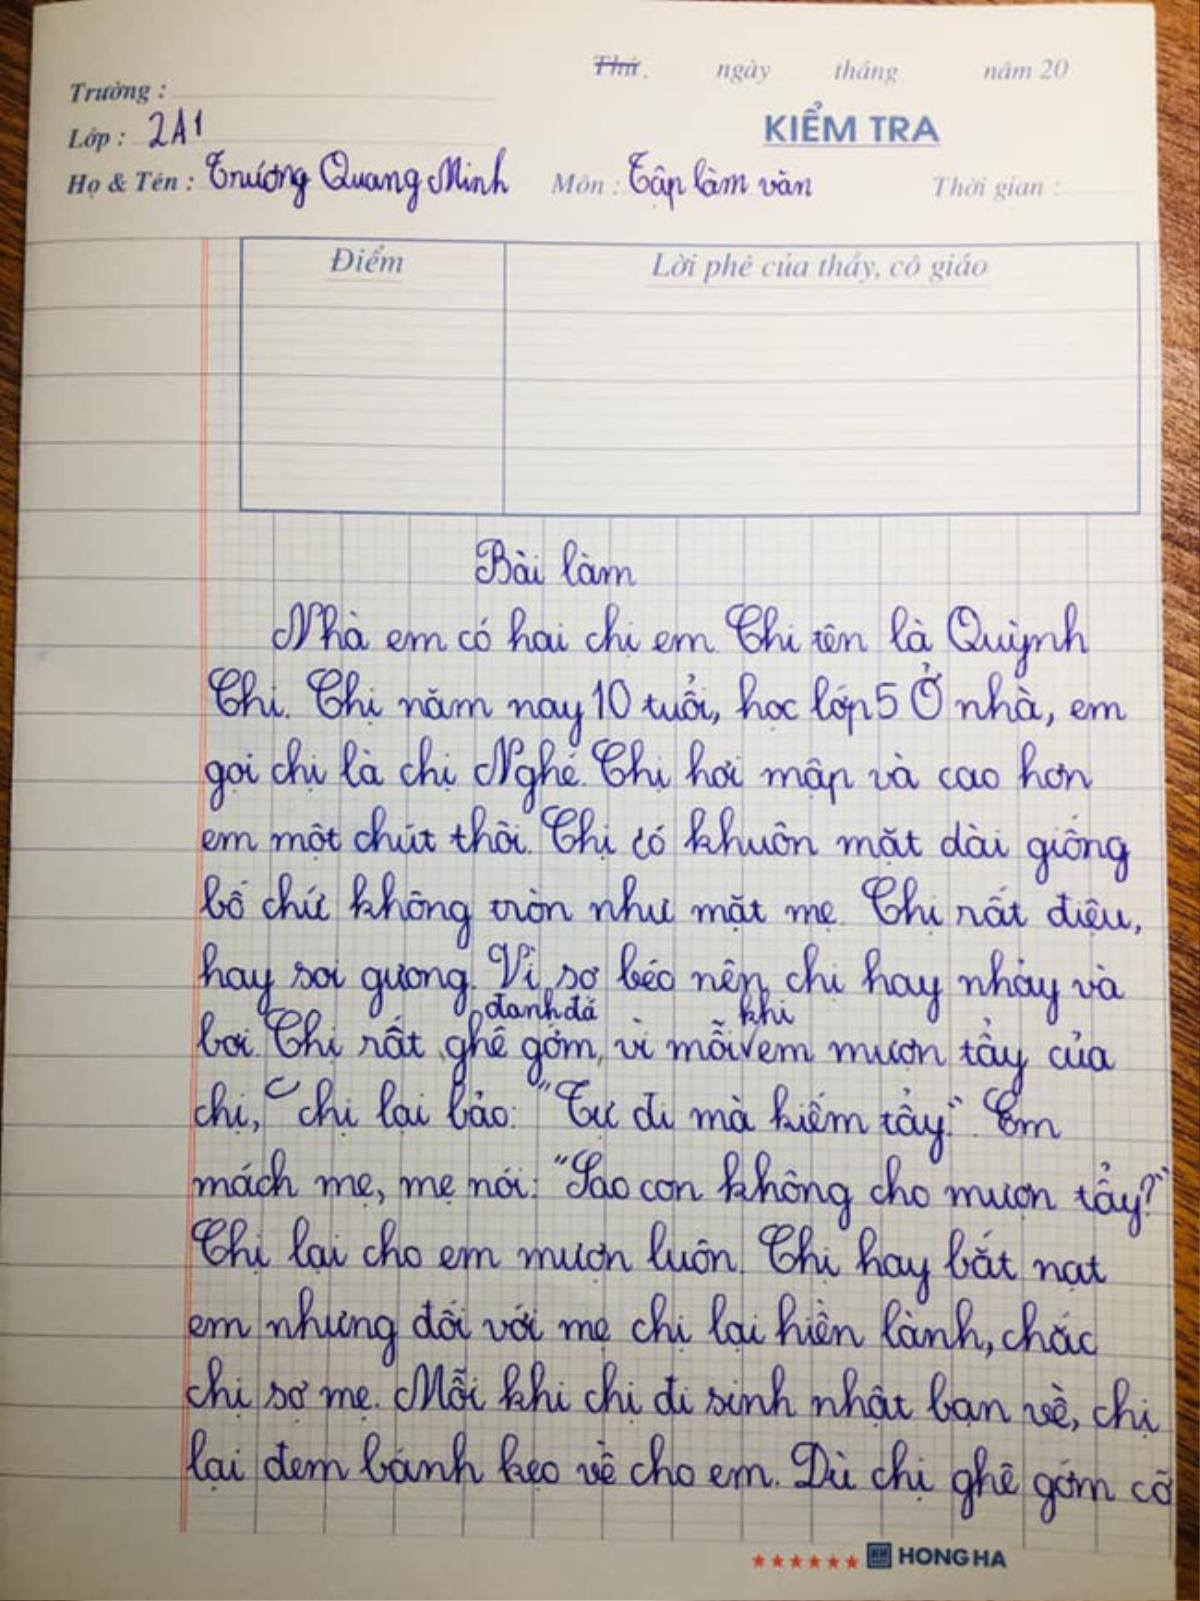 Thứ. ngày tháng năm 20
Trường :
Lớp : 2A1
KIỂM TRA
Họ & Tên : Trương Quang Minh Môn : Tập làm văn Thời gian :
Điểm Lời phê của thầy, cô giáo
Bài làm
Nhà em có hai chị em. Chị tên là Quỳnh
Chi. Chị năm nay 10 tuổi, học lớp 5 Ở nhà, em
gọi chị là chị Nghé. Chị hơi mập và cao hơn
em một chút thôi. Chị có khuôn mặt dài giống
bố chứ không tròn như mặt mẹ. Chị rất điệu,
hay soi gương. Vì sợ béo nên chị hay nhảy và
đanh đá khi
bơi. Chị rất ghê gớm, vì mỗi em mượn tẩy của
chị, chị lại bảo: "Tự đi mà kiếm tẩy." Em
mách mẹ, mẹ nói: "Sao con không cho mượn tẩy?"
Chị lại cho em mượn luôn. Chị hay bắt nạt
em nhưng đối với mẹ chị lại hiền lành, chắc
chị sợ mẹ. Mỗi khi chị đi sinh nhật bạn về, chị
lại đem bánh kẹo về cho em. Dù chị ghê gớm cỡ
HONG HA